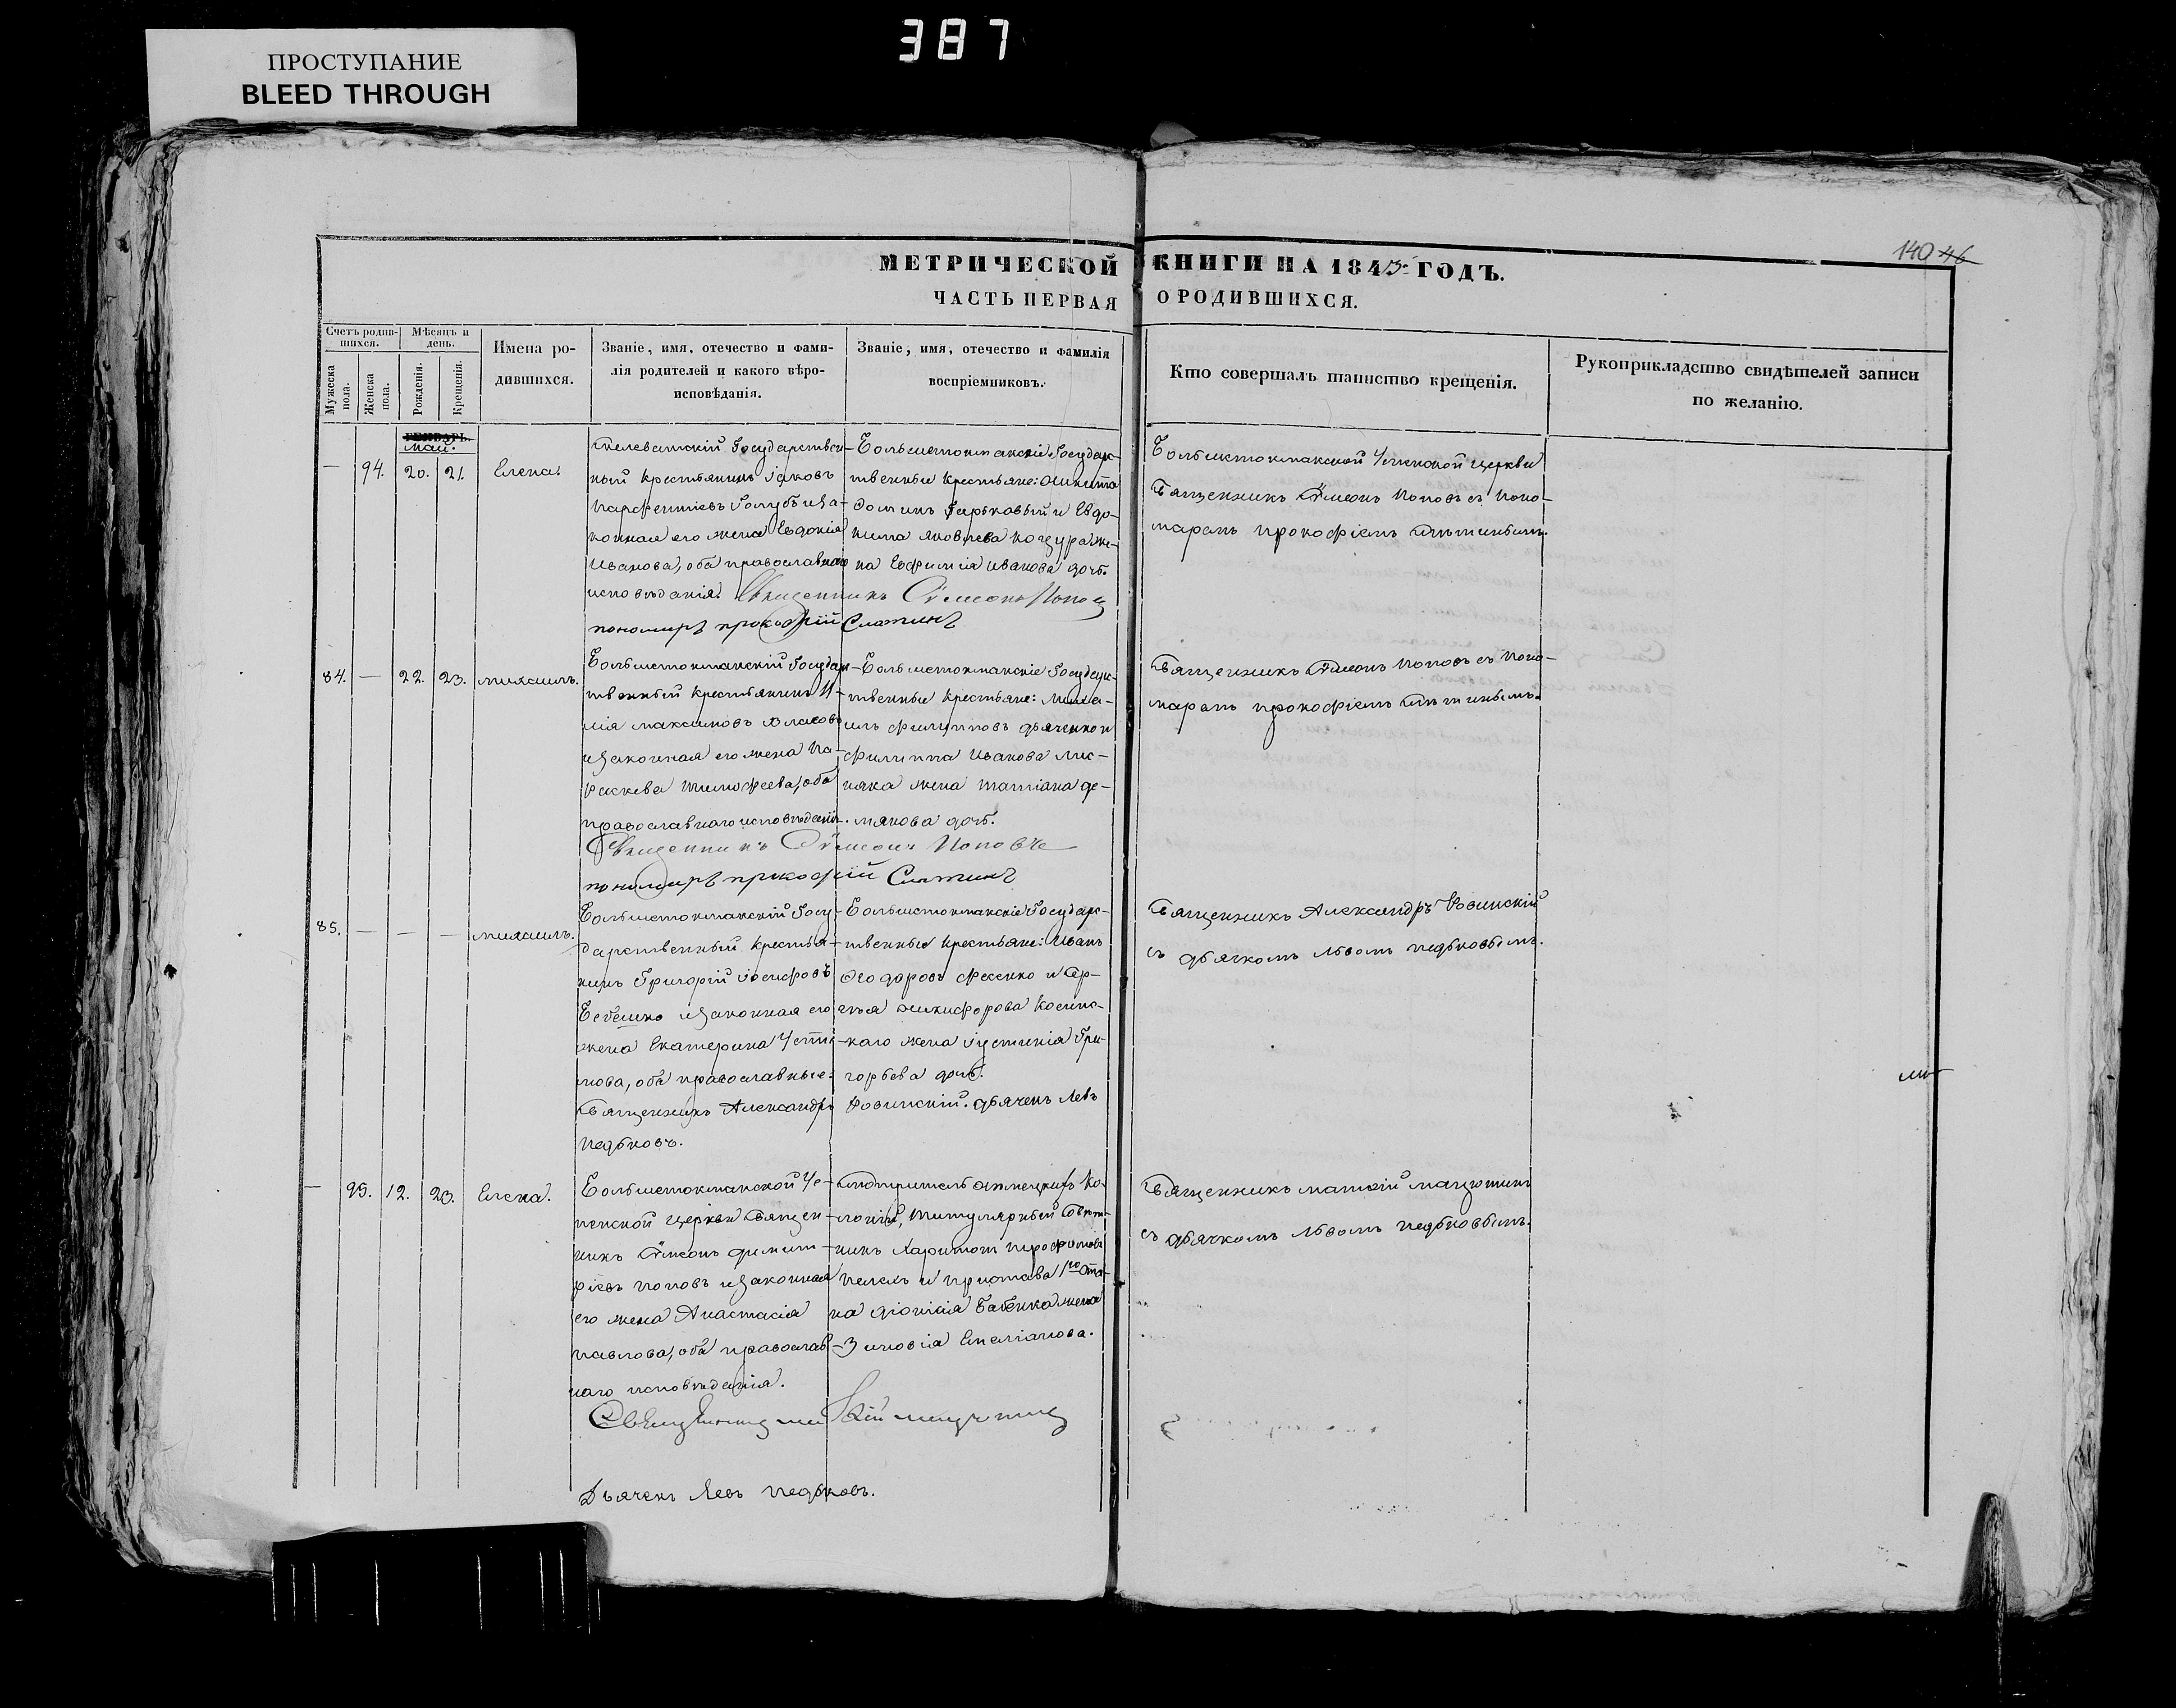 387
ПРОСТУПАНИЕ
BLEED THROUGH
140 46
МЕТРИЧЕСКОЙ КНИГИ НА 1845 ГОДЪ.
ЧАСТЬ ПЕРВАЯ О РОДИВШИХСЯ.
Счетъ родив-
шихся.
Мужеска пола.
Женска пола.
Мѣсяцъ и
день.
Рожденія.
Крещенія.
Имена ро-
дившихся.
Званіе, имя, отечество и фами-
лія родителей и какого вѣро-
исповѣданія.
Званіе, имя, отечество и фамилія
воспріемниковъ.
Кто совершалъ таинство крещенія.
Рукоприкладство свидѣтелей записи
по желанію.
ГЕНВАРЬ.
Май.
— 94. 20. 21. Елена.
Государствен-
ный крестьянинъ Іаковъ
Парфентіевъ Голубъ и за-
конная его жена Евдокія
Иванова, оба православнаго
исповѣданія. Священникъ Сѵмеонъ Поповъ
пономарь Прокофій
Большетокмакскіе Государс-
твенные крестьяне: Никита
Гарьковый и Евдо-
кима Яковлева Коцура же-
на Евфимія Иванова дочь.
Большетокмакской Успенской церкви
Священникъ Сѵмеонъ Поповъ съ поно-
маремъ Прокофіемъ
84. — 22. 23. Михаилъ.
Большетокмакскій Государс-
твенный крестьянинъ И-
лія Максимовъ Власовъ
и законная его жена Па-
раскева Тимофеева, оба
православнаго исповѣданія.
Священникъ Сѵмеонъ Поповъ
пономарь Прокофій
Большетокмакскіе Государс-
твенные крестьяне: Миха-
илъ Филипповъ Дяченко и
Филиппа Иванова Лис-
няка жена Татіана Де-
мянова дочь.
Священникъ Сѵмеонъ Поповъ съ поно-
маремъ Прокофіемъ
85. — — — Михаилъ.
Большетокмакскій Госу-
дарственный крестья-
нинъ Григорій Іосифовъ
Бебешко и законная его
жена Екатерина Усти-
нова, оба православные.
Священникъ Александръ Ровинскій. Дьячекъ Левъ
Педьковъ.
Большетокмакскіе Государс-
твенные крестьяне: Иванъ
Ѳеодоровъ Фесенко и Сер-
гѣя Никифорова Косинс-
каго жена Іустинія Гри-
горьева дочь.
Священникъ Александръ Ровинскій
съ дьячкомъ Львомъ Педьковымъ.
— 95. 12. 23. Елена.
Большетокмакской Ус-
пенской церкви Священ-
никъ Сѵмеонъ Димит-
ріевъ Поповъ и законная
его жена Анастасія
Павлова, оба православ-
наго исповѣданія.
Смотритель Ко-
лоній, Титулярный Совѣт-
никъ Харитонъ
и Пристава 1го Ста-
на Діонисія Бабенка жена
Зиновія Емеліанова.
Священникъ
съ дьячкомъ Львомъ Педьковымъ.
Дьячекъ Левъ Педьковъ.